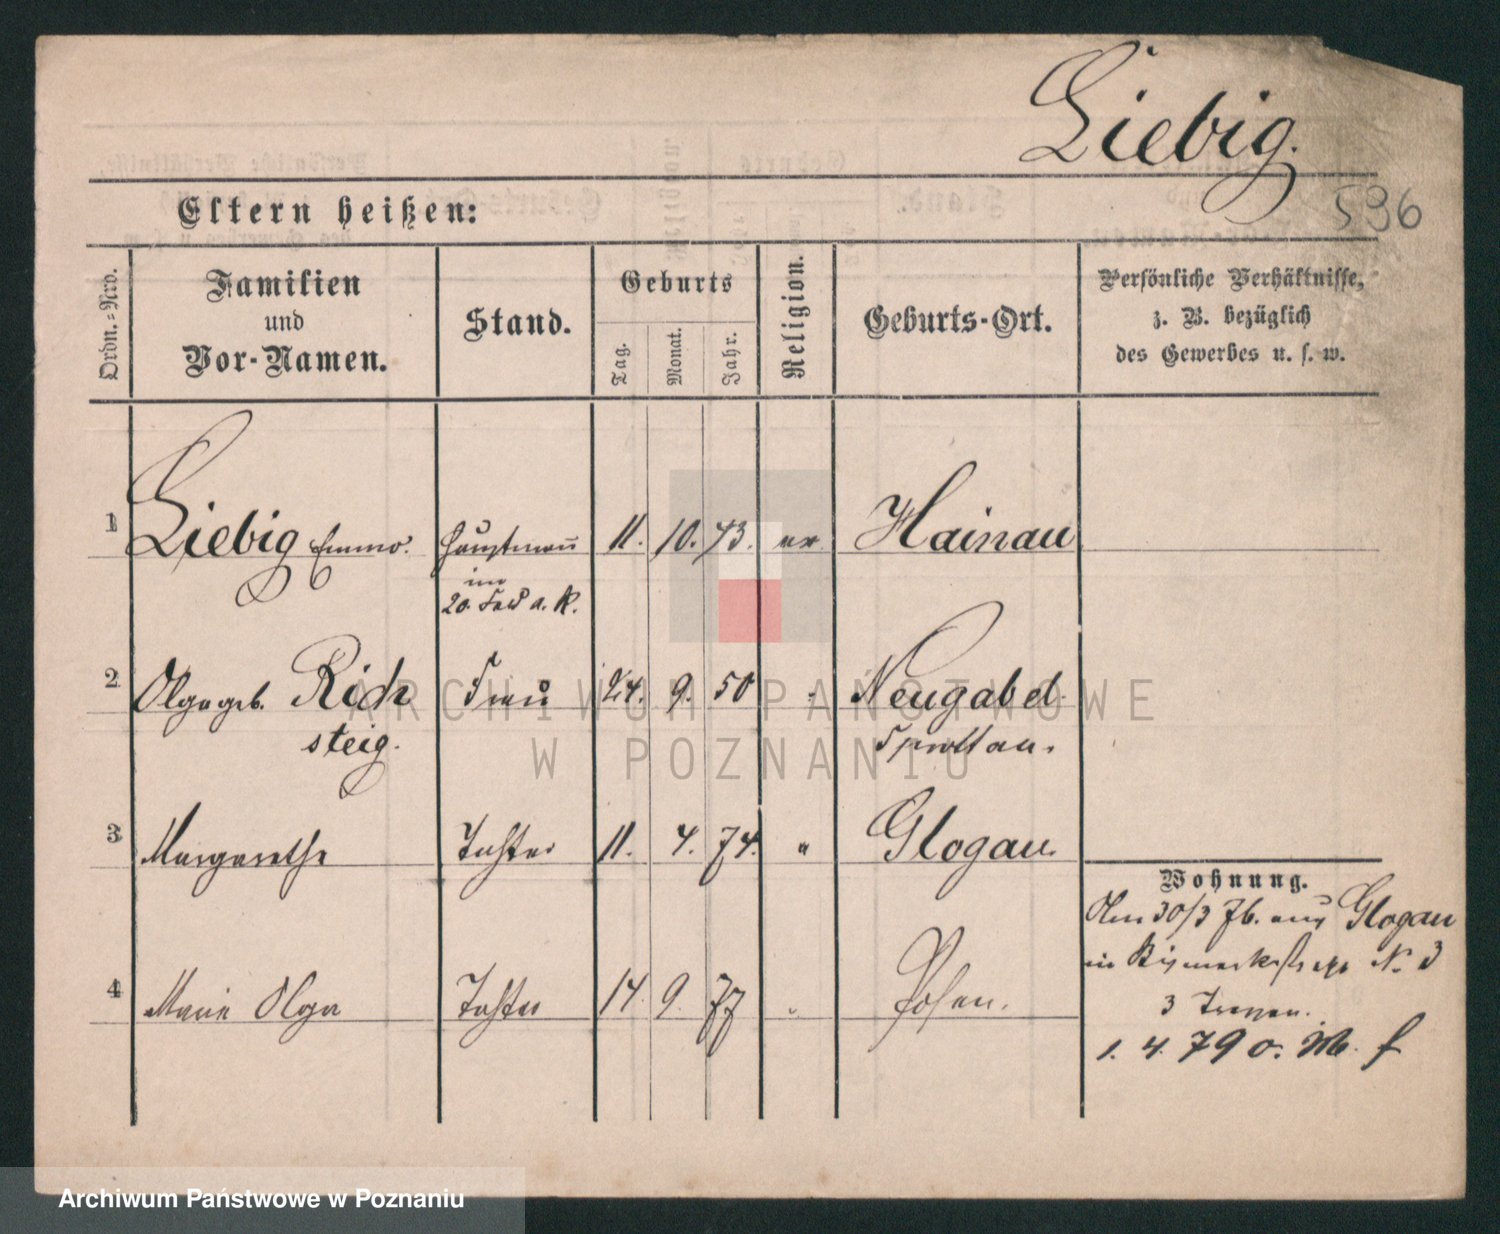 Liebig.
596
Eltern heißen:
Ordn.-Nro.
Familien
und
Vor-Namen.
Stand.
Geburts
Tag.
Monat.
Jahr.
Religion.
Geburts-Ort.
Persönliche Verhältnisse,
z. B. bezüglich
des Gewerbes u. s. w.
1 Liebig Hauptmann 11. 10. ev Hainau
im
20.
2 Olga geb. Rich Frau 24. 9. 50 Neugabel
steig. Sprottau.
3 Margarethe Tochter 11. 4. 74. " Glogau.
Wohnung.
30/3 76. aus Glogau
in Bismarckstraße N. 3
4 Marie Olga Tochter 14. 9. 77 " Posen.
3 Treppen.
1. 4. 79 o. M. f
ARCHIWUM PAŃSTWOWE
W POZNANIU
Archiwum Państwowe w Poznaniu